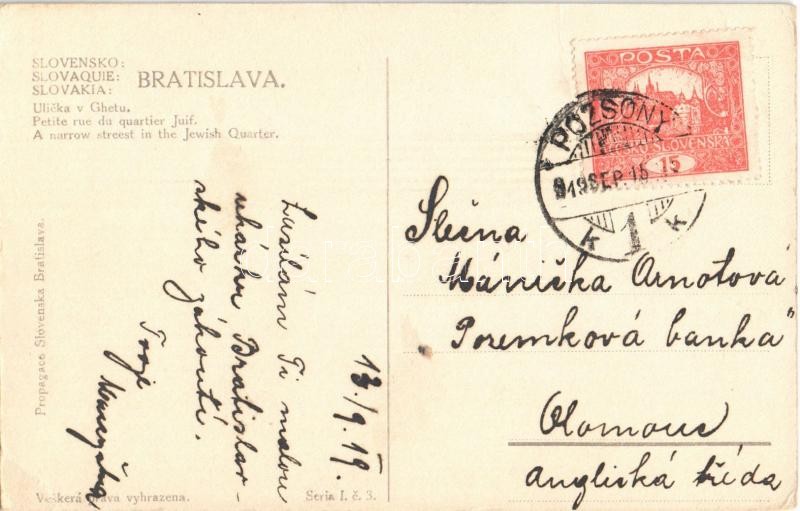 SLOVENSKO:
SLOVAQUIE: BRATISLAVA.
SLOVAKIA:
Ulička v Ghetu.
Petite rue du quartier Juif.
A narrow streest in the Jewish Quarter.
Propagace Slovenska Bratislava.
Veškerá práva vyhrazena.
Seria I. č. 3.
POŠTA
ČESKO-SLOVENSKÁ
15
POZSONY
919 SEP. 15
1
K K
13./9.19.
Zasílám Ti malou
ukázku Bratislav-
ského zákoutí.
Tvoje
Slečna
Mánička Arnotová
Pozemková banka"
Olomouc
anglická třída